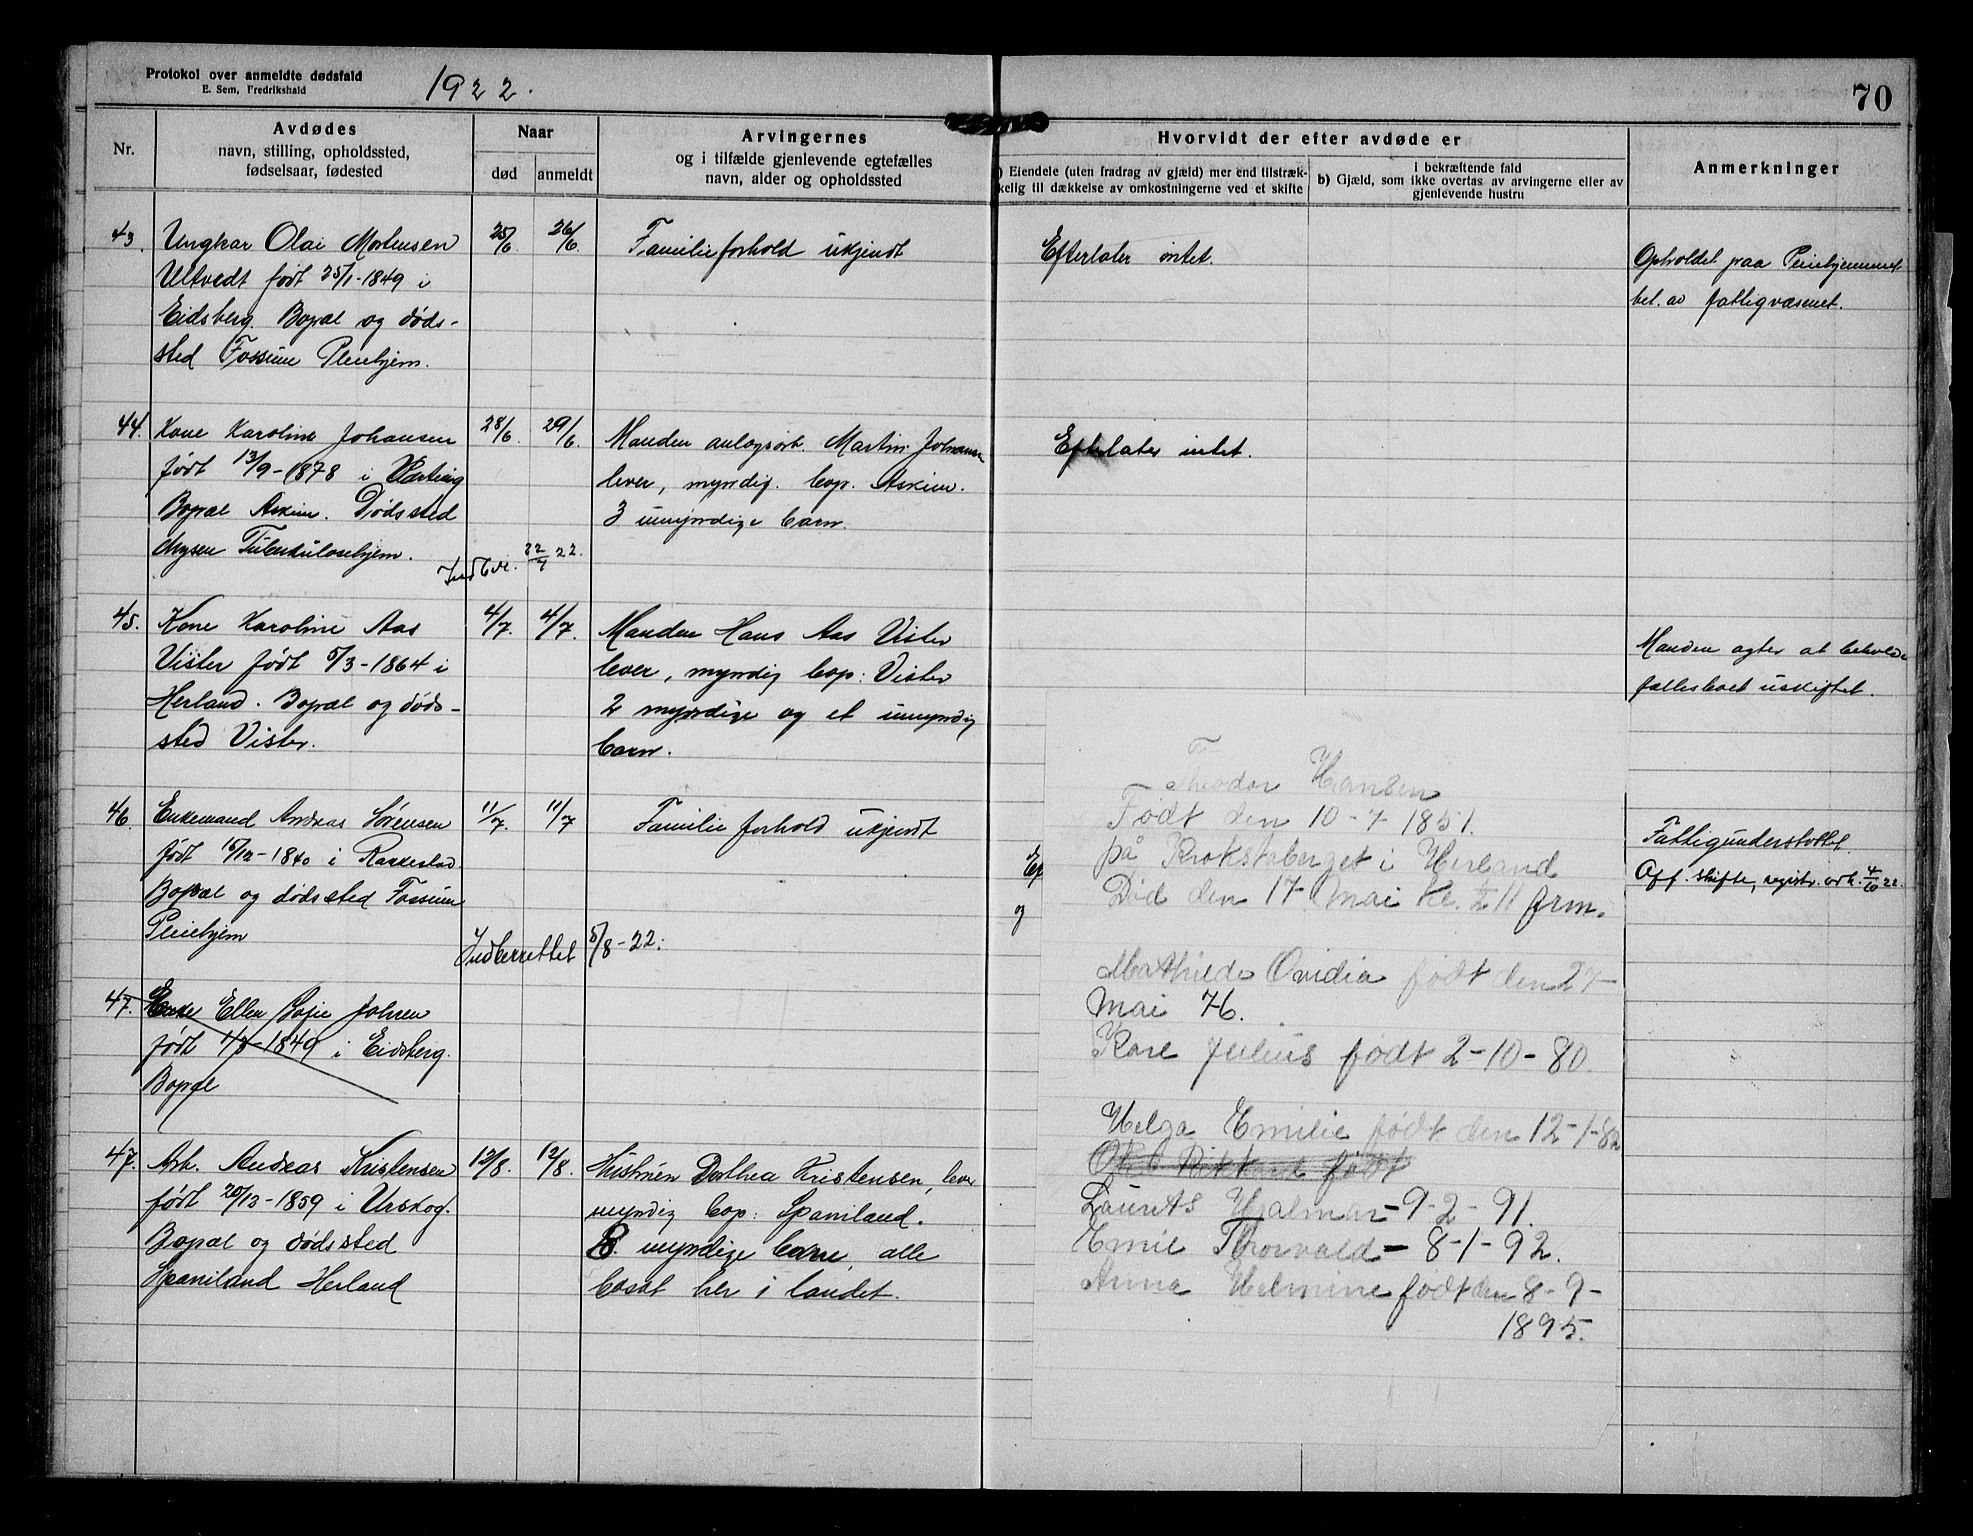 Protokol over anmeldte dødsfald
E. Sem, Fredrikshald
1922.
70
Nr.
Avdødes
navn, stilling, opholdssted,
fødselsaar, fødested
Naar
død
anmeldt
Arvingernes
og i tilfælde gjenlevende egtefælles
navn, alder og opholdssted
Hvorvidt der efter avdøde er
) Eiendele (uten fradrag av gjæld) mer end tilstræk-
kelig til dækkelse av omkostningerne ved et skifte
i bekræftende fald
b) Gjæld, som ikke overtas av arvingerne eller av
gjenlevende hustru
Anmerkninger
43.
Ungkar Olai Mortensen
Ultvedt født 25/1-1849 i
Eidsberg. Bopæl og døds-
sted Fossum Pleiehjem.
25/6.
26/6.
Familieforhold ukjendt
Efterlater intet.
Opholdet paa Pleiehjemmet
bet. av fattigvæsenet.
44.
Kone Karoline Johansen
født 13/9-1878 i Varteig
Bopæl Askim. Dødssted
Mysen Tuberkulosehjem.
28/6.
29/6.
Indber. 22/7 22.
Manden anlægsarb. Martin Johansen
lever, myndig. bop. Askim.
3 umyndige barn.
Efterlater intet.
45.
Kone Karoline Aas
Vister født 5/3-1864 i
Herland. Bopæl og døds-
sted Vister.
4/7.
4/7.
Manden Hans Aas Vister
lever, myndig bop: Vister
2 myndige og et umyndig
barn.
Manden agter at beholde
fællesboet uskiftet.
46.
Enkemand Andreas Sørensen
født 15/12-1840 i Rakkestad
Bopæl og dødssted Fossum
Pleiehjem
11/7.
11/7
Indberettet 5/8-22.
Familieforhold ukjendt
og
Fattigunderstøttet.
Off. skifte, registr. avh. 4/10 22.
47.
Enke Ellen Sofie Johnsen
født 1/8-1849 i Eidsberg.
Bopæl
47.
Arb. Andreas Kristensen
født 20/12-1859 i Urskog.
Bopæl og dødssted
Spaniland Herland
12/8.
12/8.
Hustruen Dorthea Kristensen, lever
myndig bop: Spaniland.
8 myndige barn, alle
bosat her i landet.
Theodor Hansen
Født den 10-7-1851.
på Krokstaberget i Herland
Død den 17 Mai kl. ½ 11 frm.
Mathilde Ovidia født den 27-
Mai 76.
Karl Julius født 2-10-80.
Helga Emilie født den 12-1-82
født
Laurits Hjalmar-9-2-91.
Emil Thorvald-8-1-92.
Anna Helmine født den 8-9-
1895.